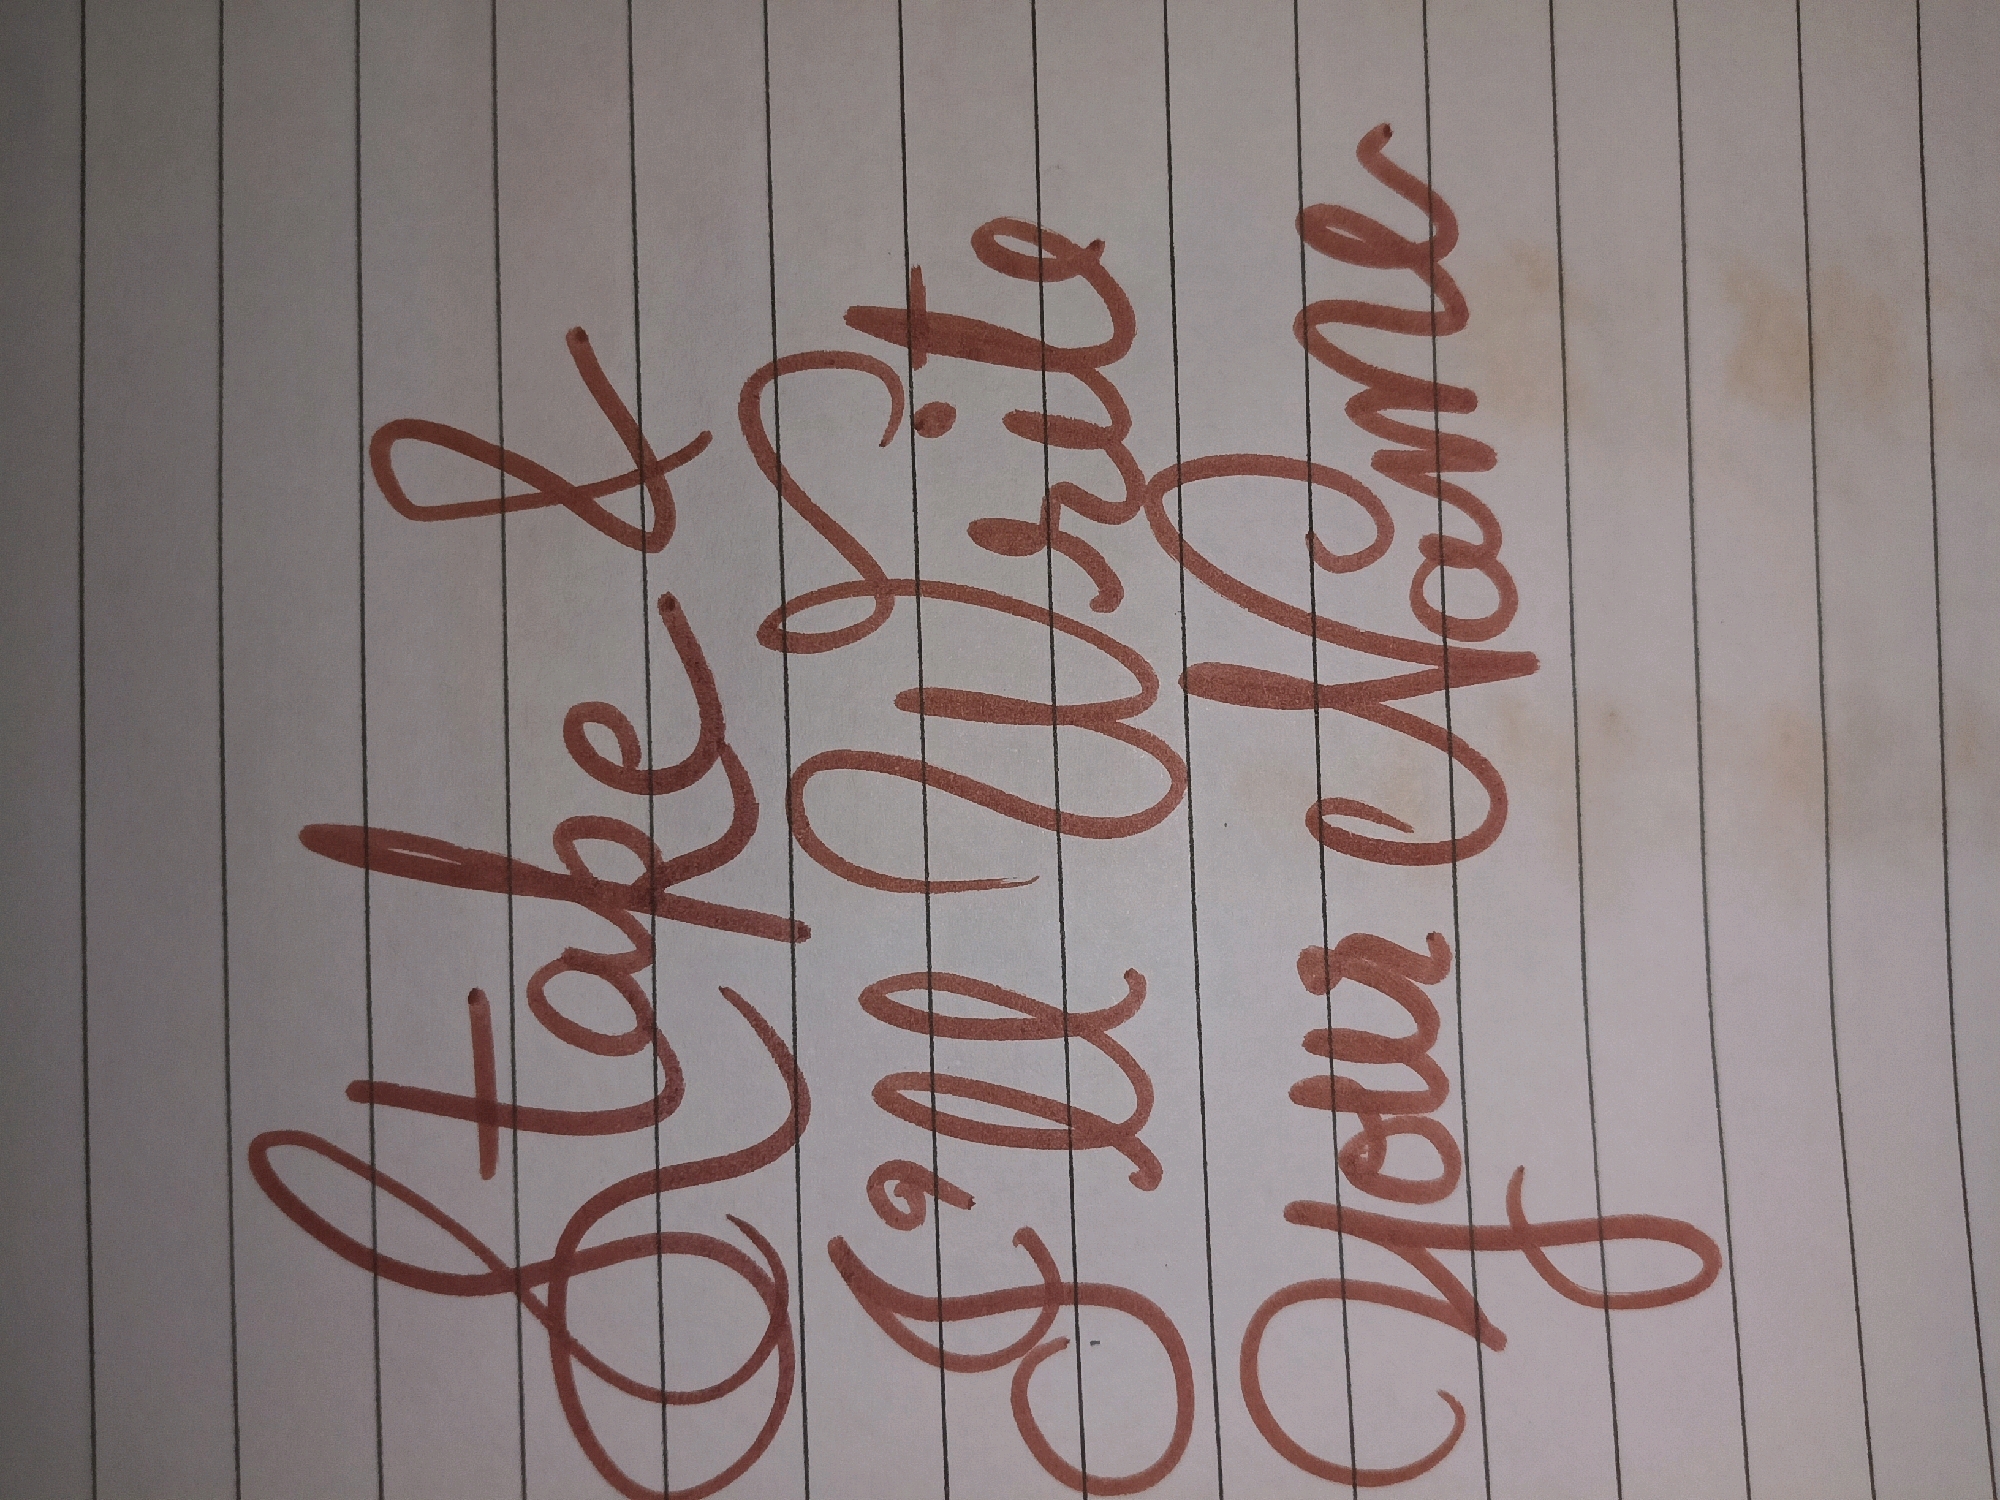 Stake &
I'll Write
Your Name